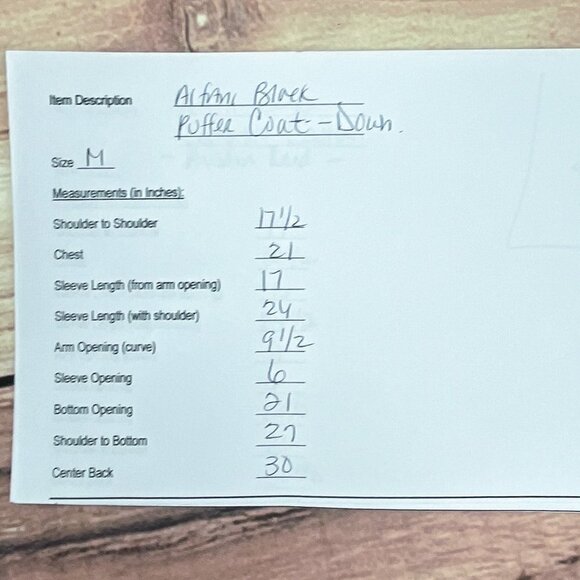 Item Description Alfani Black
Puffer Coat - Down.
Size M
Measurements (in Inches):
Shoulder to Shoulder 17 1/2
Chest 21
Sleeve Length (from arm opening) 17
Sleeve Length (with shoulder) 24
Arm Opening (curve) 9 1/2
Sleeve Opening 6
Bottom Opening 21
Shoulder to Bottom 27
Center Back 30